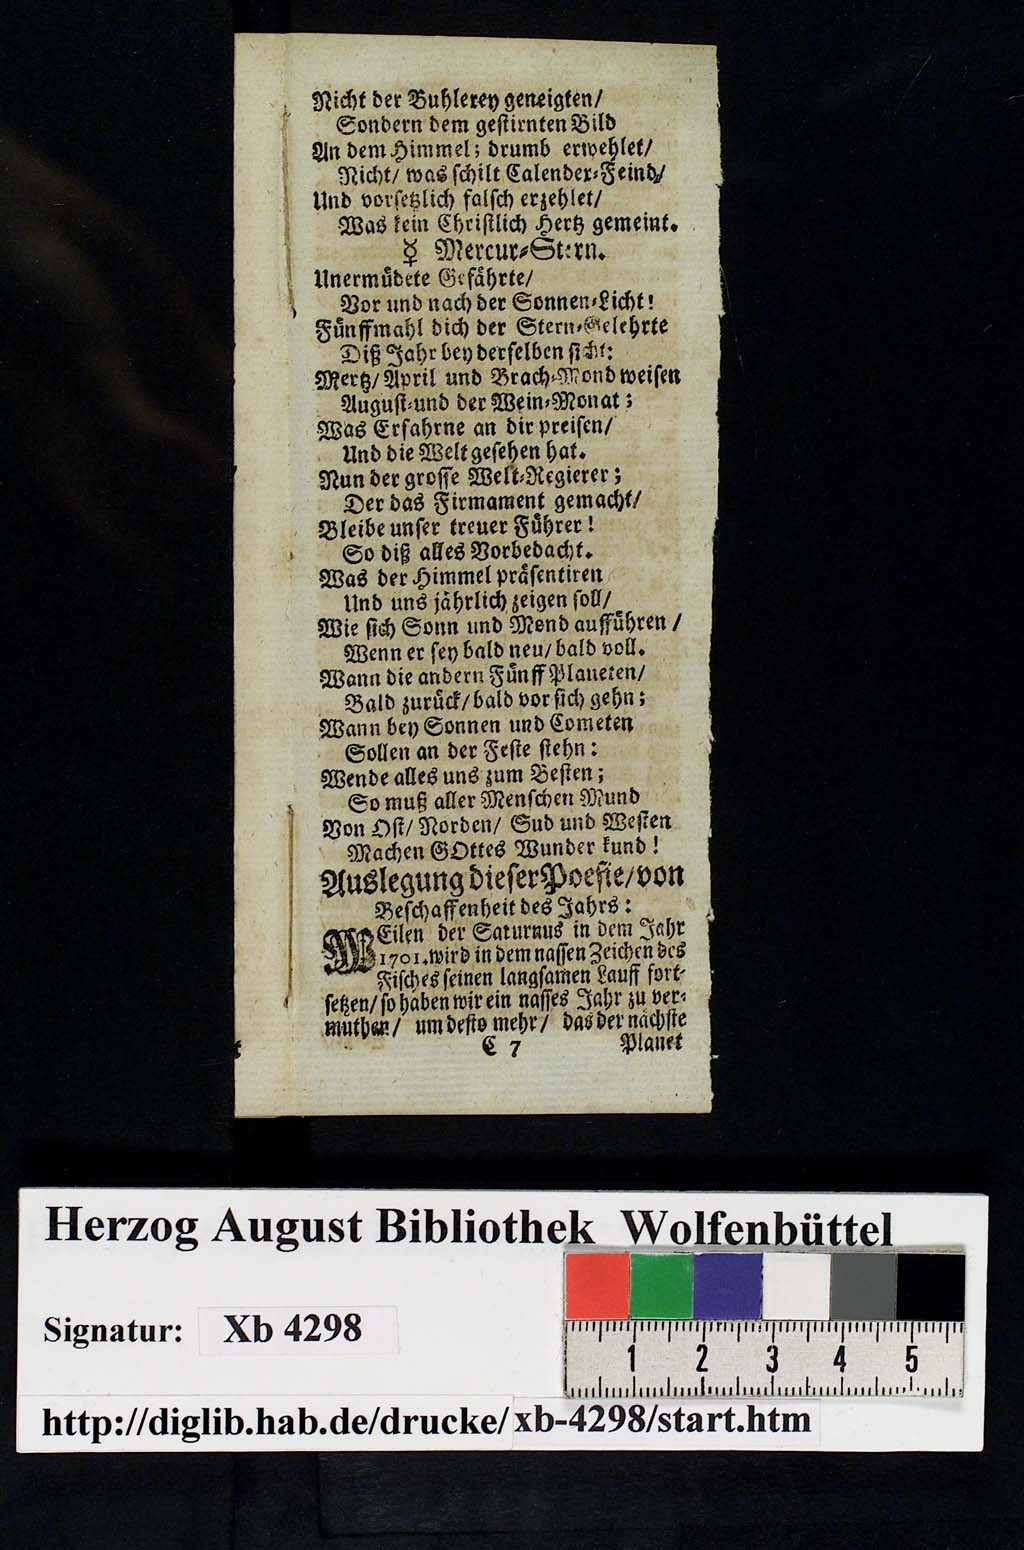 Nicht der Buhlerey geneigten/
Sondern dem gestirnten Bild
An dem Himmel; drumb erwehlet/
Nicht/ was schilt Calender-Feind/
Und vorsetzlich falsch erzehlet/
Was kein Christlich Hertz gemeint.
☿ Mercur-Stern.
Unermüdete Gefährte/
Vor und nach der Sonnen-Licht!
Fünffmahl dich der Stern-Gelehrte
Diß Jahr bey derselben sicht:
Mertz/ April und Brach-Mond weisen
August-und der Wein-Monat;
Was Erfahrne an dir preisen/
Und die Welt gesehen hat.
Nun der grosse Welt-Regierer;
Der das Firmament gemacht/
Bleibe unser treuer Führer!
So diß alles Vorbedacht.
Was der Himmel präsentiren
Und uns jährlich zeigen soll/
Wie sich Sonn und Mond aufführen/
Wenn er sey bald neu/ bald voll.
Wann die andern Fünff Planeten/
Bald zurück/ bald vor sich gehn;
Wann bey Sonnen und Cometen
Sollen an der Feste stehn:
Wende alles uns zum Besten;
So muß aller Menschen Mund
Von Ost/ Norden/ Sud und Westen
Machen GOttes Wunder kund!
Auslegung dieser Poesie/ von
Beschaffenheit des Jahrs:
WEilen der Saturnus in dem Jahr
1701. wird in dem nassen Zeichen des
Fisches seinen langsamen Lauff fort-
setzen/ so haben wir ein nasses Jahr zu ver-
muthen/ um desto mehr/ das der nächste
C 7 Planet
Herzog August Bibliothek Wolfenbüttel
Signatur: Xb 4298
1 2 3 4 5
http://diglib.hab.de/drucke/xb-4298/start.htm